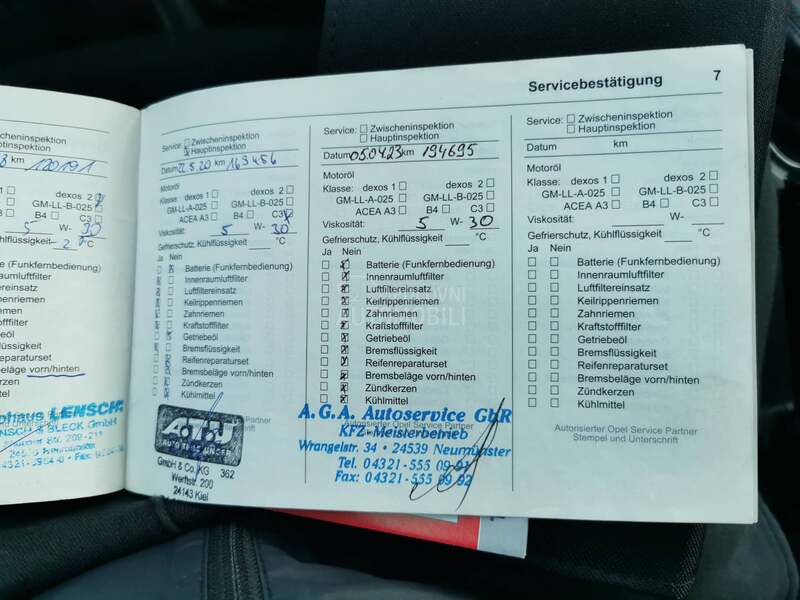 Servicebestätigung 7
Zwischeninspektion
Hauptinspektion
km 120191
dexos 2
GM-LL-B-025
B4 C3
5 W- 30
Kühlflüssigkeit °C
Nein
Batterie (Funkfernbedienung)
Innenraumluftfilter
Luftfiltereinsatz
Keilrippenriemen
Zahnriemen
Kraftstofffilter
Getriebeöl
Bremsflüssigkeit
Reifenreparaturset
vorn/hinten
Zündkerzen
Kühlmittel
LENSCH
BLECK GmbH
Service: Zwischeninspektion
Hauptinspektion
Datum 22.5.20 km 163456
Motoröl
Klasse: dexos 1 dexos 2
GM-LL-A-025 GM-LL-B-025
ACEA A3 B4 C3
Viskosität: 5 W- 30
Gefrierschutz, Kühlflüssigkeit °C
Ja Nein
Batterie (Funkfernbedienung)
Innenraumluftfilter
Luftfiltereinsatz
Keilrippenriemen
Zahnriemen
Kraftstofffilter
Getriebeöl
Bremsflüssigkeit
Reifenreparaturset
Bremsbeläge vorn/hinten
Zündkerzen
Kühlmittel
GmbH & Co. KG 362
Werftstr. 200
24143 Kiel
Service: Zwischeninspektion
Hauptinspektion
Datum 05.04.23 km 194695
Motoröl
Klasse: dexos 1 dexos 2
GM-LL-A-025 GM-LL-B-025
ACEA A3 B4 C3
Viskosität: 5 W- 30
Gefrierschutz, Kühlflüssigkeit °C
Ja Nein
Batterie (Funkfernbedienung)
Innenraumluftfilter
Luftfiltereinsatz
Keilrippenriemen
Zahnriemen
Kraftstofffilter
Getriebeöl
Bremsflüssigkeit
Reifenreparaturset
Bremsbeläge vorn/hinten
Zündkerzen
Kühlmittel
A.G.A. Autoservice GbR
Autorisierter Opel Service Partner
KFZ-Meisterbetrieb
Wrangelstr. 34 • 24539 Neumünster
Tel. 04321-555 09 91
Fax: 04321-555 09 92
Service: Zwischeninspektion
Hauptinspektion
Datum km
Motoröl
Klasse: dexos 1 dexos 2
GM-LL-A-025 GM-LL-B-025
ACEA A3 B4 C3
Viskosität: W-
Gefrierschutz, Kühlflüssigkeit °C
Ja Nein
Batterie (Funkfernbedienung)
Innenraumluftfilter
Luftfiltereinsatz
Keilrippenriemen
Zahnriemen
Kraftstofffilter
Getriebeöl
Bremsflüssigkeit
Reifenreparaturset
Bremsbeläge vorn/hinten
Zündkerzen
Kühlmittel
Autorisierter Opel Service Partner
Stempel und Unterschrift